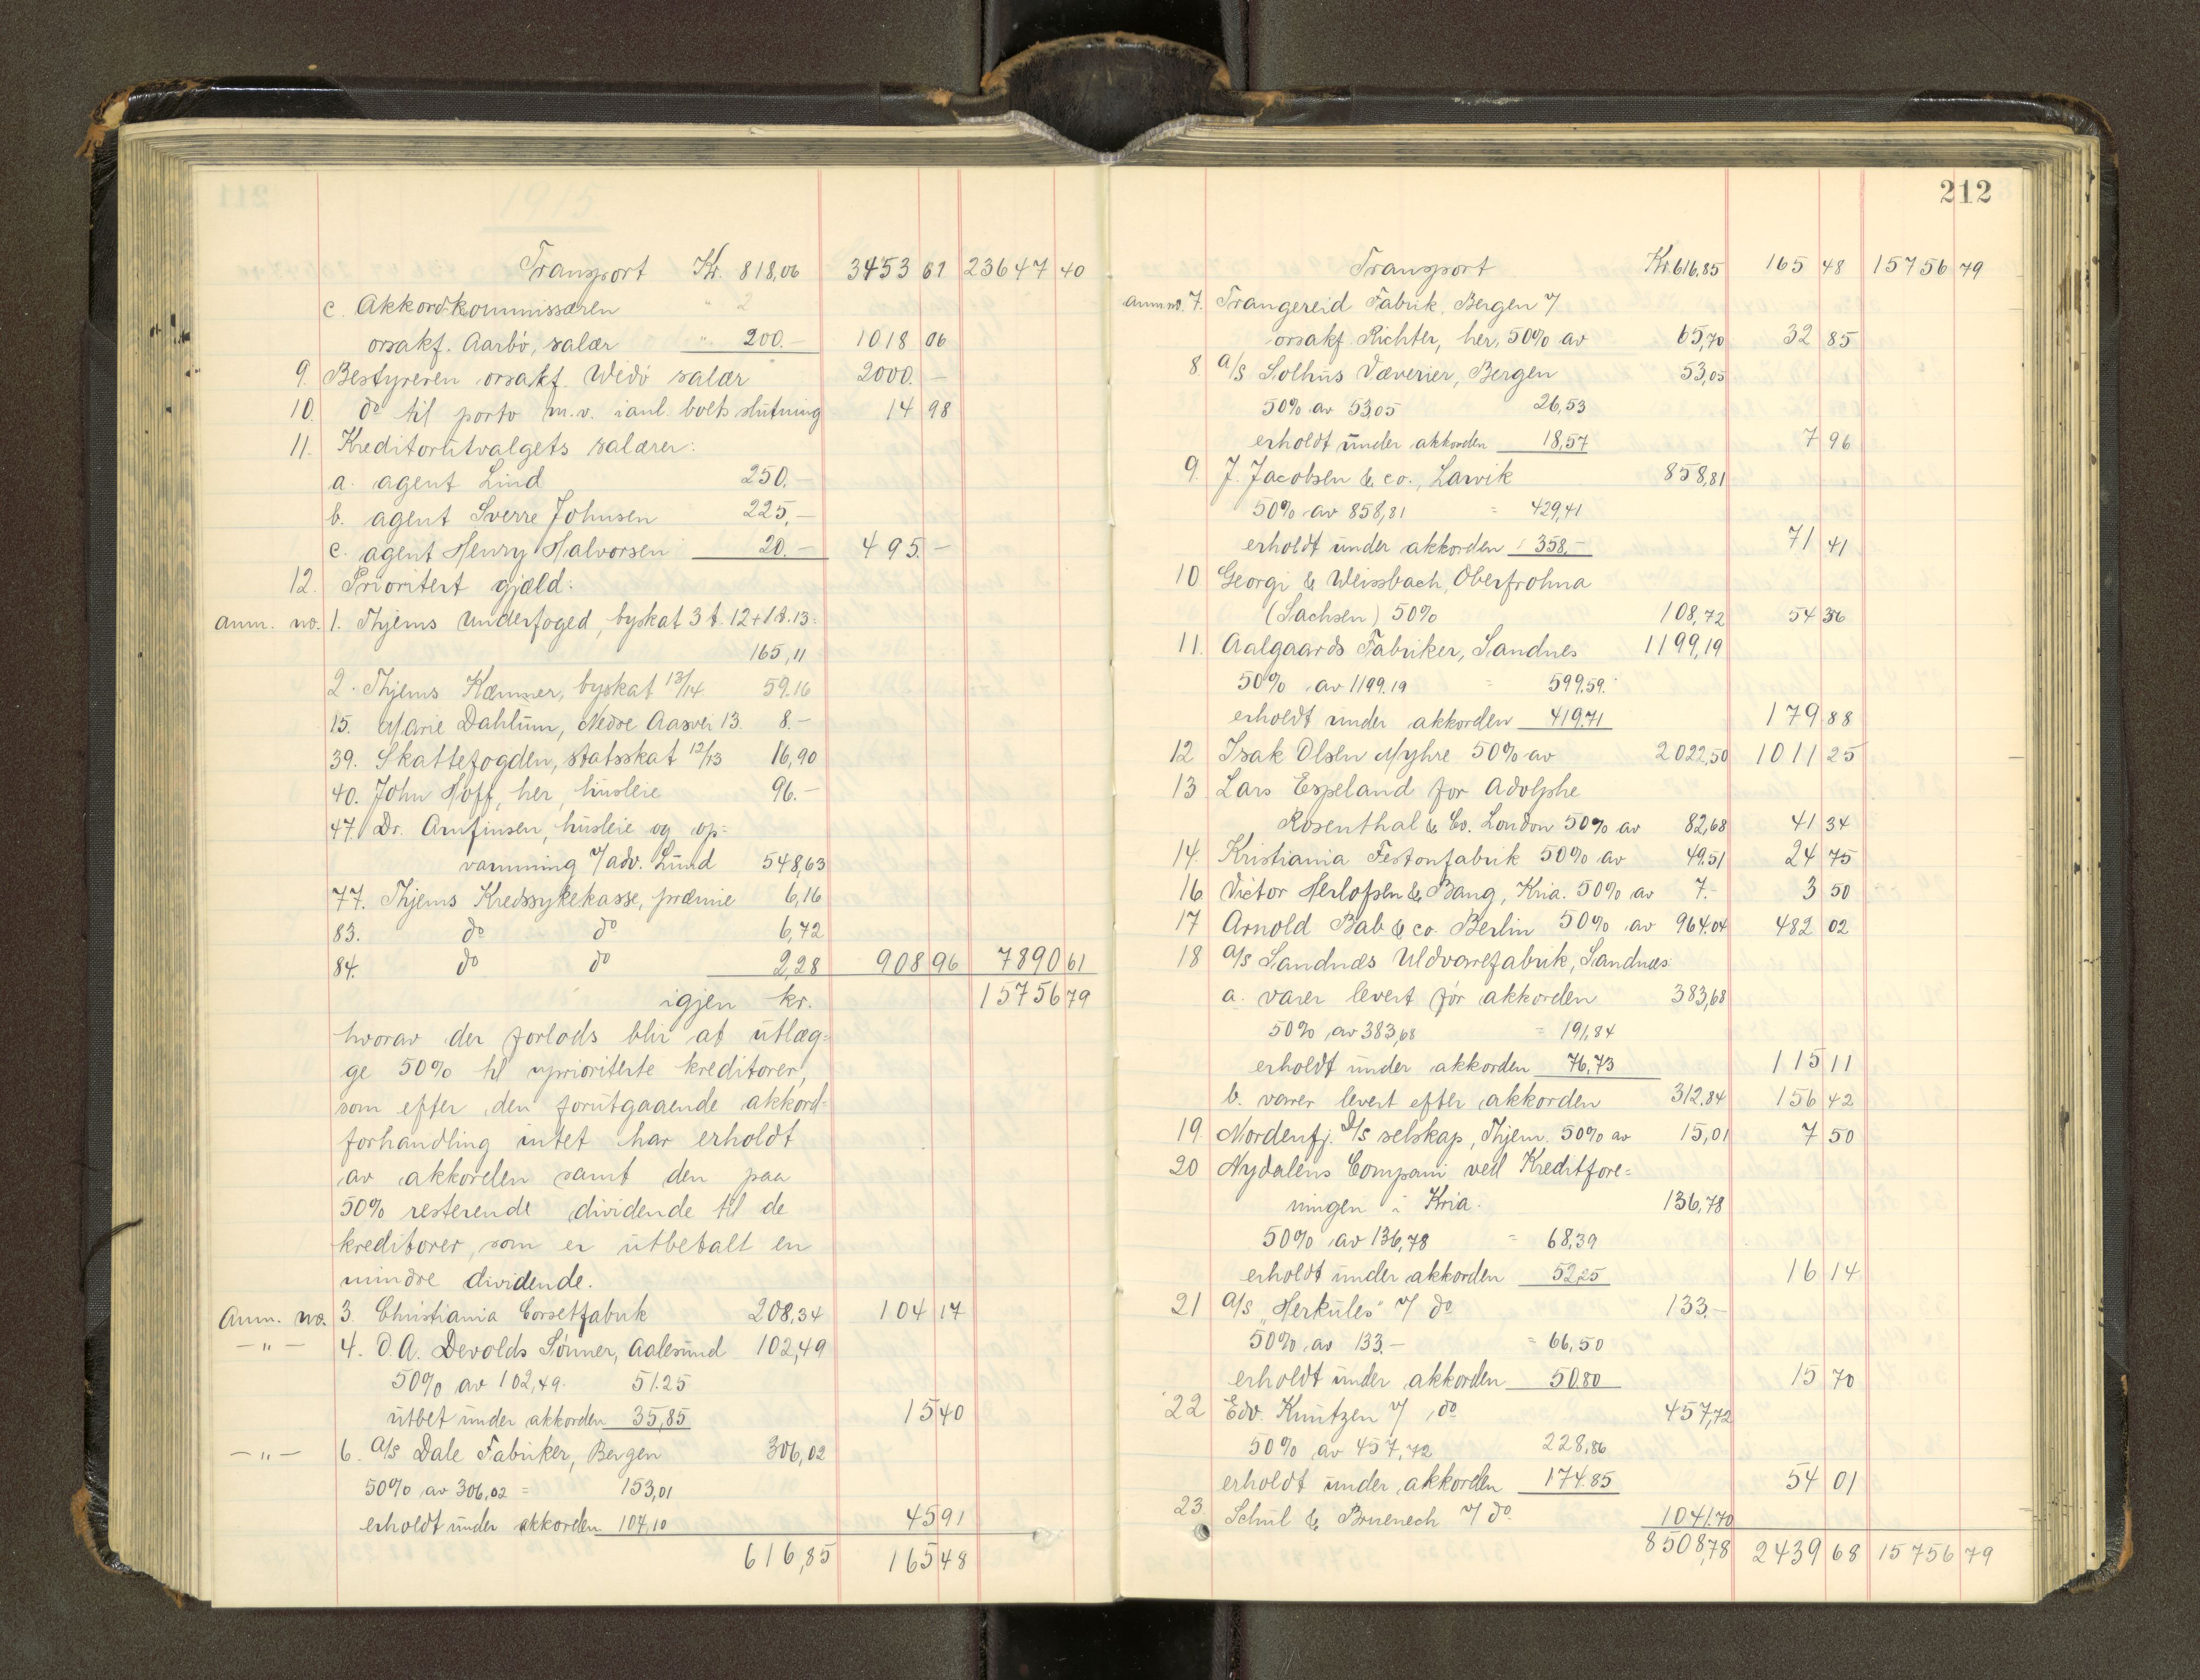 Transport Kr. 818,06 3453 61 23647 40
c. Akkordkommissæren
orsakf. Aarbö, salær " 200.- 1018 06
9. Bestyreren orsakf. Wedö salær 2000. -
10. do til porto m.v. i anl. boets slutning 14 98
11. Kreditorutvalgets salærer:
a. agent Lind 250.-
b. agent Sverre Johnsen 225,-
c. agent Henry Halvorsen 20.- 495. -
12. Prioritert gjæld:
Anm. no. 1. Thjems Underfoged, byskat 3 t. 12 + 1 t. 13:
165,11
2. Thjems Kæmner, byskat 13/14 59.16
15. Marie Dahlum, Nedre Aasvei 13. 8.-
39. Skattefogden, statsskat 12/13 16,90
40. John Hoff, her, husleie 96.-
47. Dr. Arnfinsen, husleie og op=
varmning v/ adv. Lund 548,63
77. Thjems Kredssykekasse, præmie 6,16
83. do do 6,72
84. do do 2,28 908 96 7890 61
igjen kr. 15756 79
hvorav der forlods blir at utlæg=
ge 50% til uprioriterte kreditorer,
som efter den forutgaaende akkord=
forhandling intet har erholdt
av akkorden samt den paa
50% resterende dividende til de
kreditorer, som er utbetalt en
mindre dividende.
Anm. no. 3. Christiania Corsetfabrik 208,34 104 17
-"- 4. O.A. Devolds Sönner, Aalesund 102,49
50% av 102,49. 51.25
utbet under akkorden 35,85 15 40
-"- 6. A/s Dale Fabriker, Bergen 306,02
50% av 306,02 = 153,01
erholdt under akkorden 107,10 45 91
616,85 165 48
212
Transport Kr. 616,85 165 48 15756 79
Anm. no. 7. Trangereid Fabrik, Bergen v/
orsakf. Richter, her, 50% av 65,70 32 85
8. A/s Solhus Væverier, Bergen 53,05
50% av 53,05 26,53
erholdt under akkorden 18,57 7 96
9. J. Jacobsen & co., Larvik 858,81
50% av 858,81 = 429,41
erholdt under akkorden 358,- 71 41
10 Georgi & Weissbach, Oberfrohna
(Sachsen) 50% 108,72 54 36
11. Aalgaards Fabriker, Sandnes 1199,19
50% av 1199.19 = 599.59.
erholdt under akkorden 419,71 179 88
12 Isak Olsen Myhre 50% av 2022,50 1011 25
13 Lars Espeland for Adolphe
Rosenthal & Co. London 50% av 82,68 41 34
14. Kristiania Festonfabrik 50% av 49.51 24 75
16 Victor Herlofsen & Bang, Kria. 50% av 7.- 3 50
17 Arnold Bab & co. Berlin 50% av 964.04 482 02
18 A/s Sandnæs Uldvarefabrik, Sandnæs
a. varer levert för akkorden 383,68
50% av 383,68 = 191,84
erholdt under akkorden 76,73 115 11
b. varer levert efter akkorden 312.84 156 42
19. Nordenfj. D/s selskap, Thjem. 50% av 15,01 7 50
20 Nydalens Compani ved Kreditfore=
ningen i Kria. 136,78
50% av 136,78 = 68,39
erholdt under akkorden 52,25 16 14
21 A/s "Herkules" v/ do 133.-
50% av 133.- = 66,50
erholdt under akkorden 50.80 15 70
22 Edv. Knutzen v/ do 457,72
50% av 457,72 228,86
erholdt under akkorden 174.85 54 01
23. Schul & Bruenech v/ do. 1041.70
8508,78 2439 68 15756 79